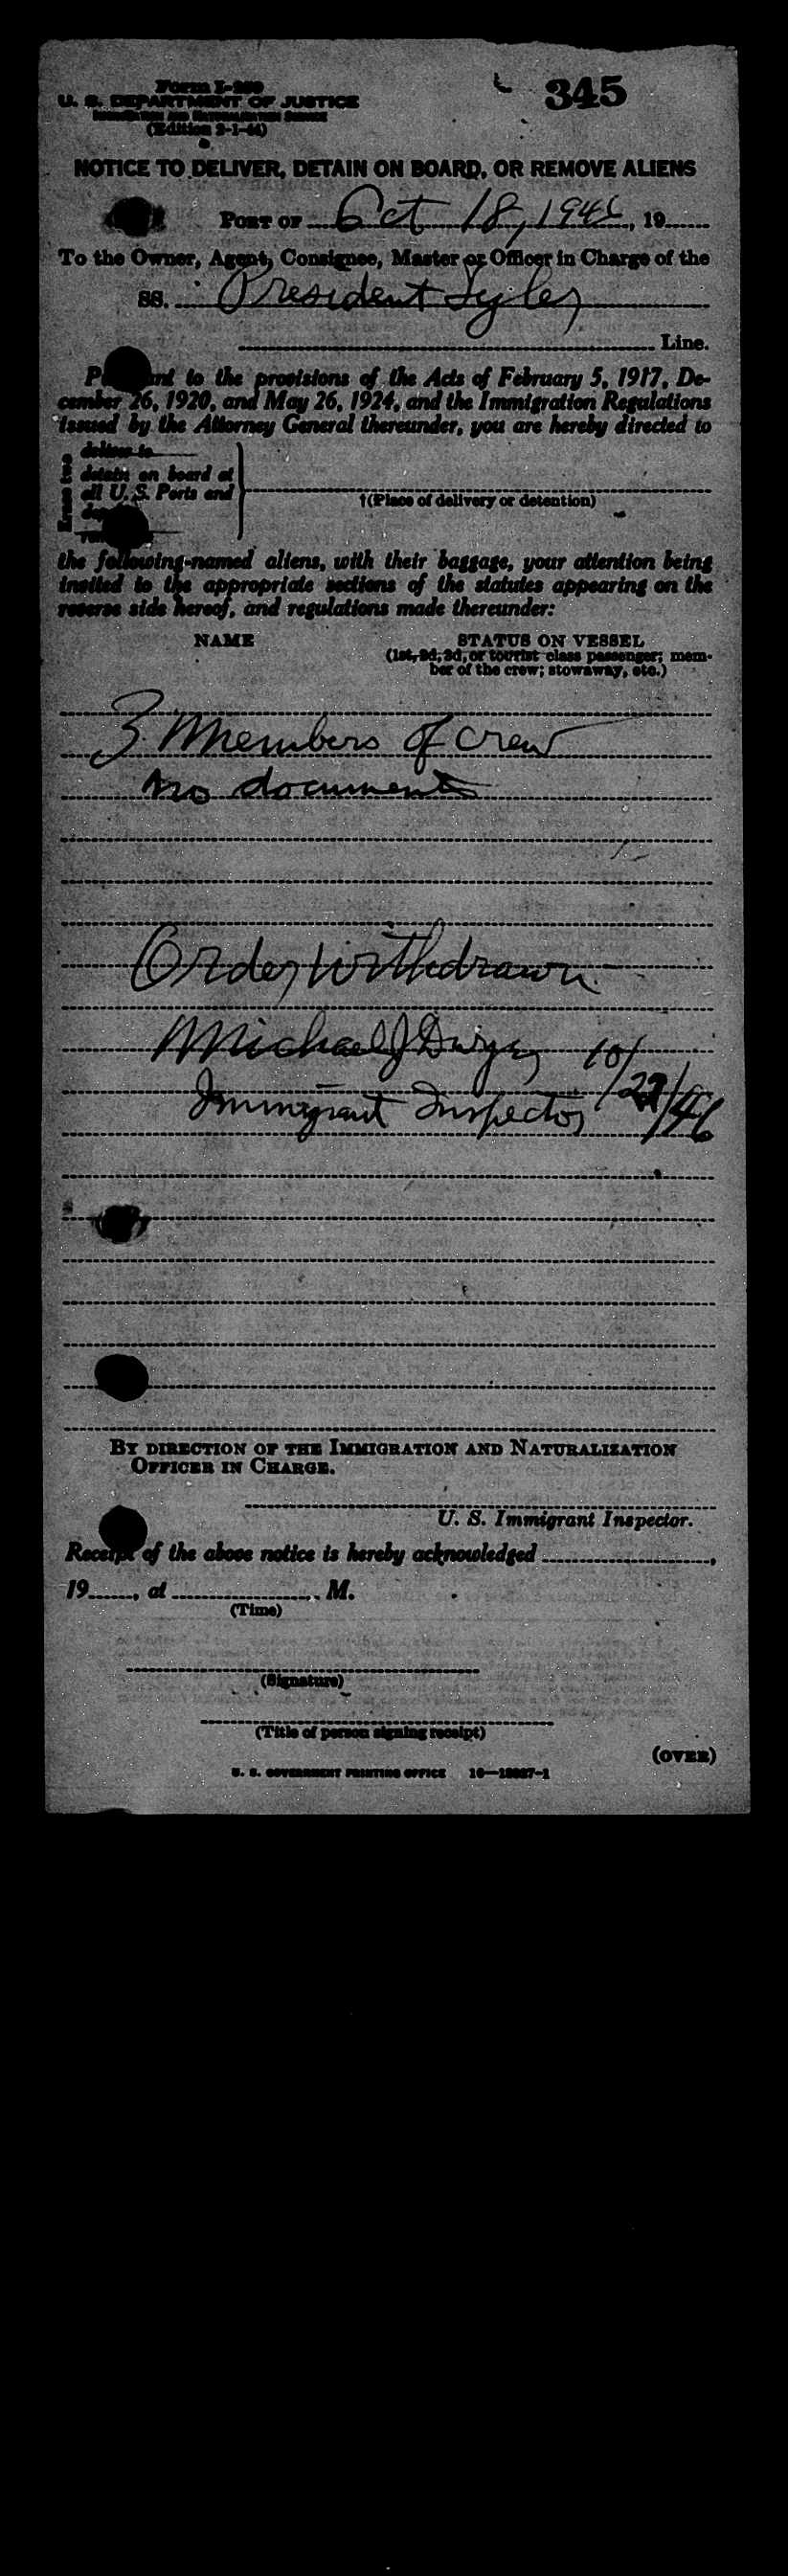 Form I-259
345
U. S. DEPARTMENT OF JUSTICE
IMMIGRATION AND NATURALIZATION SERVICE
(Edition 2-1-44)
NOTICE TO DELIVER, DETAIN ON BOARD, OR REMOVE ALIENS
PORT OF Oct 18, 1946, 19
To the Owner, Agent, Consignee, Master or Officer in Charge of the
SS. President Tyler
Line.
to the provisions of the Acts of February 5, 1917, De-
cember 26, 1920, and May 26, 1924, and the Immigration Regulations
issued by the Attorney General thereunder, you are hereby directed to
deliver to
detain on board at
all U. S. Ports and
†(Place of delivery or detention)
the following-named aliens, with their baggage, your attention being
invited to the appropriate sections of the statutes appearing on the
reverse side hereof, and regulations made thereunder:
NAME
STATUS ON VESSEL
(1st, 2d, 3d, or tourist class passenger; mem-
ber of the crew; stowaway, etc.)
3 Members of crew
no documents
Order Withdrawn
Michael J Dwyer 10/22/46
Immigrant Inspector
BY DIRECTION OF THE IMMIGRATION AND NATURALIZATION
OFFICER IN CHARGE.
U. S. Immigrant Inspector.
Receipt of the above notice is hereby acknowledged
19, at M.
(Time)
(Signature)
(Title of person signing receipt)
(OVER)
U. S. GOVERNMENT PRINTING OFFICE